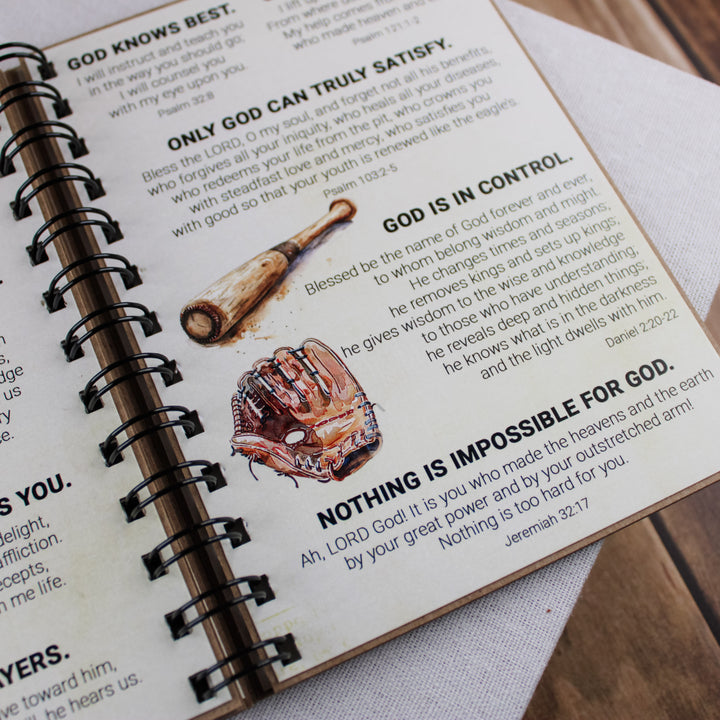 GOD KNOWS BEST.
I will instruct and teach you
in the way you should go;
I will counsel you
with my eye upon you.
Psalm 32:8
I lift up
From where
My help comes from
who made heaven and
Psalm 121:1-2
ONLY GOD CAN TRULY SATISFY.
Bless the LORD, O my soul, and forget not all his benefits,
who forgives all your iniquity, who heals all your diseases,
who redeems your life from the pit, who crowns you
with steadfast love and mercy, who satisfies you
with good so that your youth is renewed like the eagle's.
Psalm 103:2-5
GOD IS IN CONTROL.
Blessed be the name of God forever and ever,
to whom belong wisdom and might.
He changes times and seasons;
he removes kings and sets up kings;
he gives wisdom to the wise and knowledge
to those who have understanding;
he reveals deep and hidden things;
he knows what is in the darkness
and the light dwells with him.
Daniel 2:20-22
NOTHING IS IMPOSSIBLE FOR GOD.
Ah, LORD God! It is you who made the heavens and the earth
by your great power and by your outstretched arm!
Nothing is too hard for you.
Jeremiah 32:17
us
YOU.
delight,
affliction.
me life.
toward him,
he hears us.